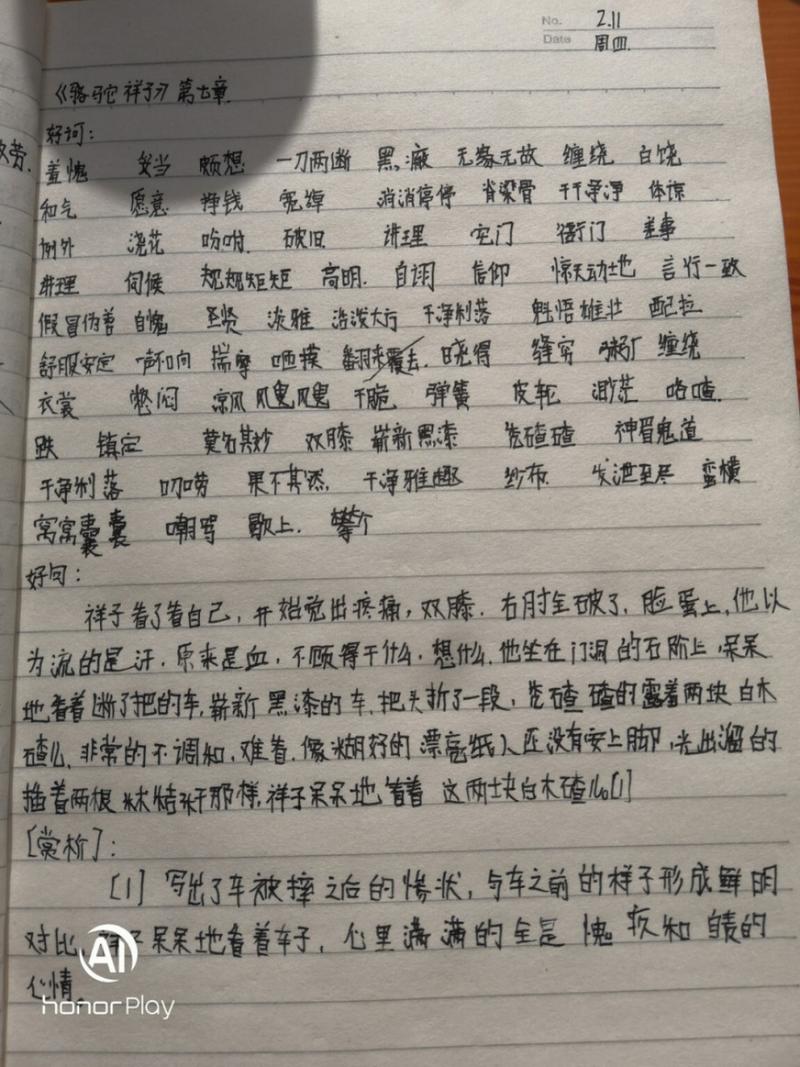 No. 2.11
Date 周四.
《骆驼祥子》第七章.
好词:
羞愧 妥当 颇想 一刀两断 黑漆 无缘无故 缠绕 白饶
和气 愿意 挣钱 宽绰 消消停停 脊梁骨 干干净净 体谅
例外 浇花 吩咐. 破旧 讲理 宅门 衙门 差事
讲理 伺候 规规矩矩 高明. 自诩 信仰 惊天动地 言行一致
假冒伪善 自愧 圣贤 淡雅 活泼大方 干净利落 魁悟雄壮 配拉
舒服安定 声响 揣摩 咂摸 翻来覆去 晓得 缝穷 粥厂 缠绕
衣裳 憋闷 凉风 飕飕 干脆 弹簧 皮轮 渺茫
跌 镇定 莫名其妙 双膝 崭新黑漆 秃碴碴 神眉鬼道
干净利落 叨唠 果不其然. 干净雅趣 纱布 发泄至尽 蛮横
窝窝囊囊 嘲骂 歇上. 攀个
好句:
祥子看了看自己,开始觉出疼痛,双膝.右肘全破了,脸蛋上,他以
为流的是汗,原来是血,不顾得干什么,想什么.他坐在门洞的石阶上,呆呆
地看着断了把的车,崭新黑漆的车,把头折了一段,秃碴碴的露着两块白木
碴儿,非常的不调和,难看.像糊好的漂亮纸人还没有安上脚,光出溜的
插着两根秫秸杆那样,祥子呆呆地看着这两块白木碴儿。[1]
[赏析]:
[1]写出了车被摔之后的惨状,与车之前的样子形成鲜明
对比,祥子呆呆地看着车子,心里满满的全是愧疚和自责的
心情.
AI
honor Play